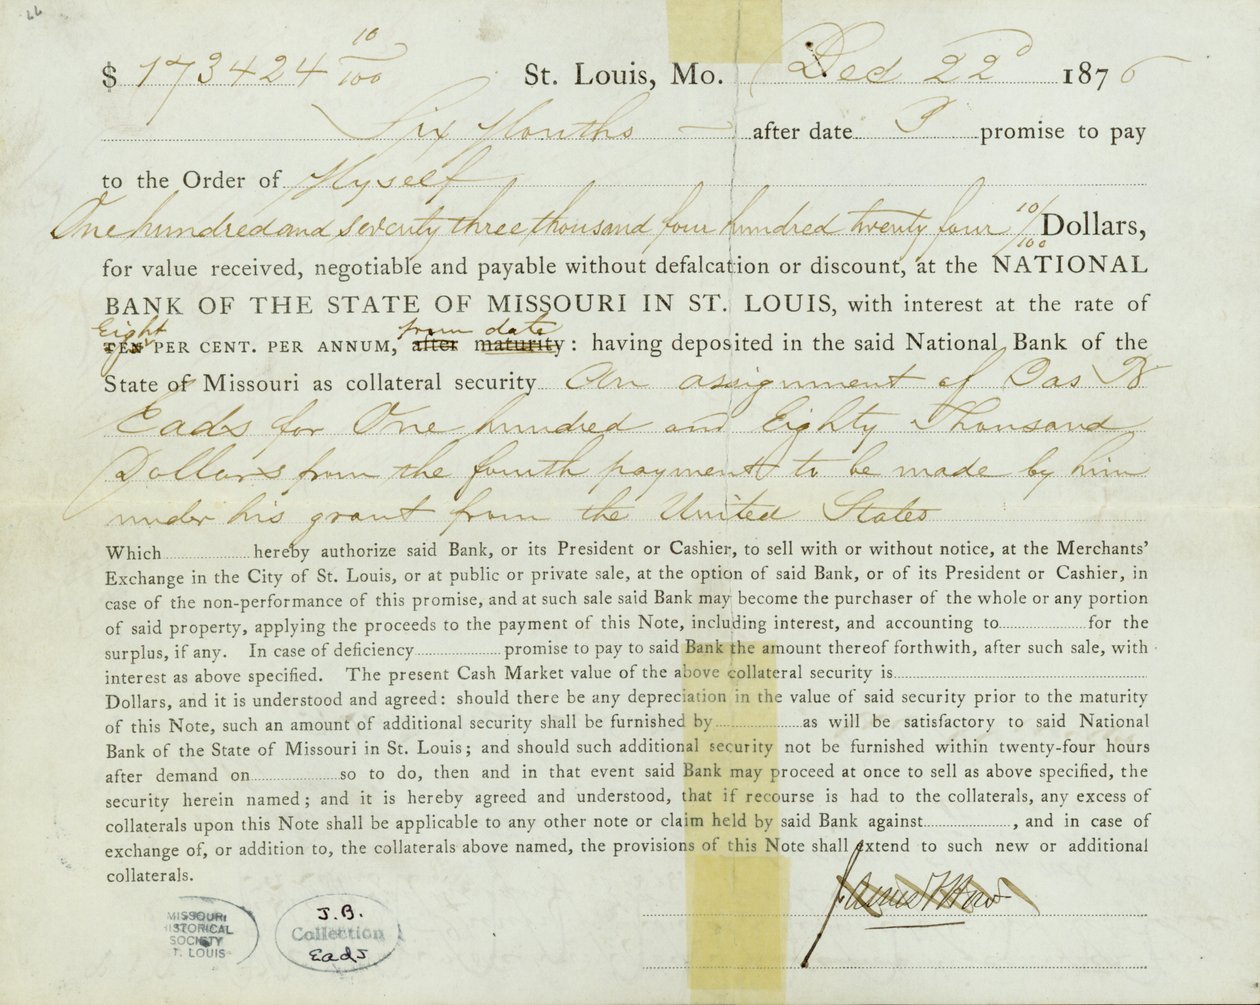 $ 173424 10/100 St. Louis, Mo. Dec 22d 1876
Six Months — after date I promise to pay
to the Order of Myself
One hundred and seventy three thousand four hundred twenty four 10/100 Dollars,
for value received, negotiable and payable without defalcation or discount, at the NATIONAL
BANK OF THE STATE OF MISSOURI IN ST. LOUIS, with interest at the rate of
Eight from date
TEN PER CENT. PER ANNUM, after maturity: having deposited in the said National Bank of the
State of Missouri as collateral security An assignment of Jas B
Eads for One hundred and Eighty Thousand
Dollars from the fourth payment to be made by him
under his grant from the United States
Which hereby authorize said Bank, or its President or Cashier, to sell with or without notice, at the Merchants'
Exchange in the City of St. Louis, or at public or private sale, at the option of said Bank, or of its President or Cashier, in
case of the non-performance of this promise, and at such sale said Bank may become the purchaser of the whole or any portion
of said property, applying the proceeds to the payment of this Note, including interest, and accounting to for the
surplus, if any. In case of deficiency promise to pay to said Bank the amount thereof forthwith, after such sale, with
interest as above specified. The present Cash Market value of the above collateral security is
Dollars, and it is understood and agreed: should there be any depreciation in the value of said security prior to the maturity
of this Note, such an amount of additional security shall be furnished by as will be satisfactory to said National
Bank of the State of Missouri in St. Louis; and should such additional security not be furnished within twenty-four hours
after demand on so to do, then and in that event said Bank may proceed at once to sell as above specified, the
security herein named; and it is hereby agreed and understood, that if recourse is had to the collaterals, any excess of
collaterals upon this Note shall be applicable to any other note or claim held by said Bank against , and in case of
exchange of, or addition to, the collaterals above named, the provisions of this Note shall extend to such new or additional
collaterals.
James F How
MISSOURI
HISTORICAL
SOCIETY
ST. LOUIS
J.B.
Collection
Eads